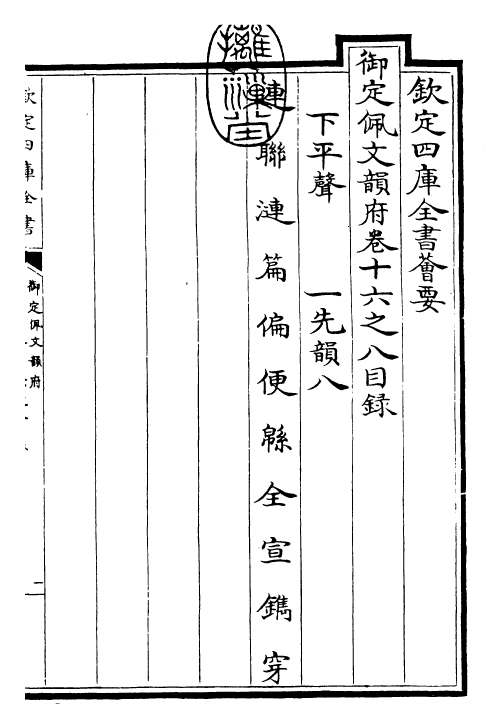 欽定四庫全書薈要
御定佩文韻府卷十六之八目録
下平聲 一先韻八
連 聯 漣 篇 偏 便 緜 全 宣 鐫 穿
欽定四庫全書
御定佩文韻府
二